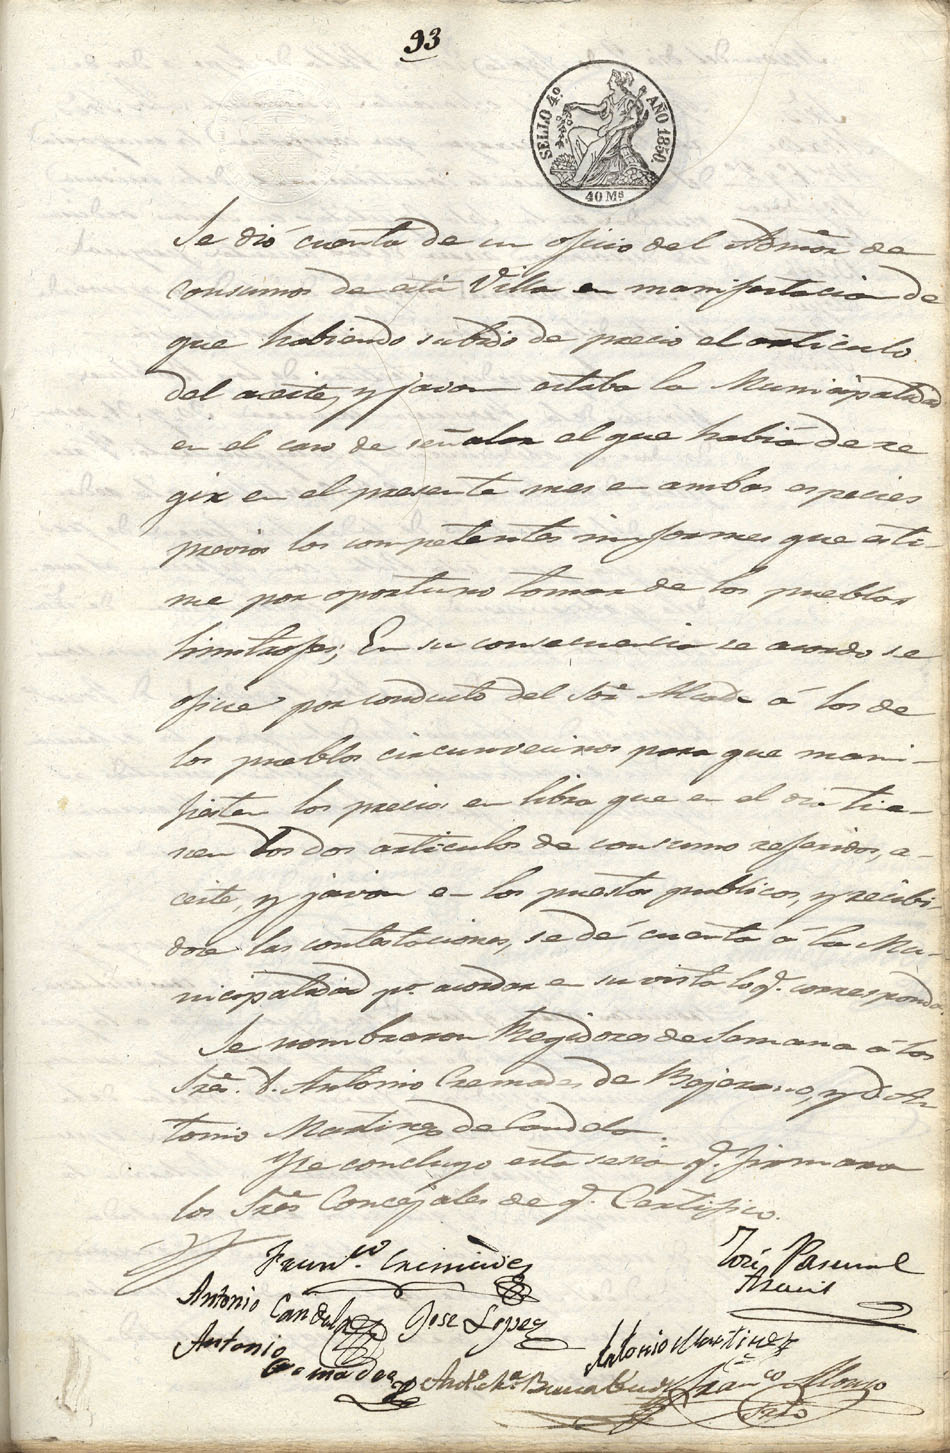 93
SELLO 4º AÑO 1850.
40 Ms
Se dió cuenta de un oficio del Admor de
consumos de esta Villa en manifestacion de
que habiendo subido de precio el articulo
del aceite, y javon estaba la Municipalidad
en el caso de señalar el que habia de re
gir en el presente mes en ambas especies
previos los competentes informes que esti-
me por oportuno tomar de los pueblos
limitrofes; En su consecuencia se acordó se
oficie por conducto del Sor Alcalde á los de
los pueblos circunvecinos para que mani-
fiesten los precios en libra que en el dia tie-
nen los dos articulos de consumo referidos, a-
ceite, y javon en los puestos publicos, y recibi-
das las contestaciones, se dé cuenta á la Mu-
nicipalidad pa. acordar en su vista lo q. corresponda.
Se nombraron Regidores de Semana á los
Sres. D. Antonio Cremades de Bejerano, y D. An
tonio Martinez de Candela.
Y se concluyo esta sesion q. firmaron
los Sres Concejales de q. Certifico.
Franco. Cremades
José Pascual
Antonio Candela
Jose Lopez
Antonio Martinez
Antonio
Cremades
Franco Alonso
Srio